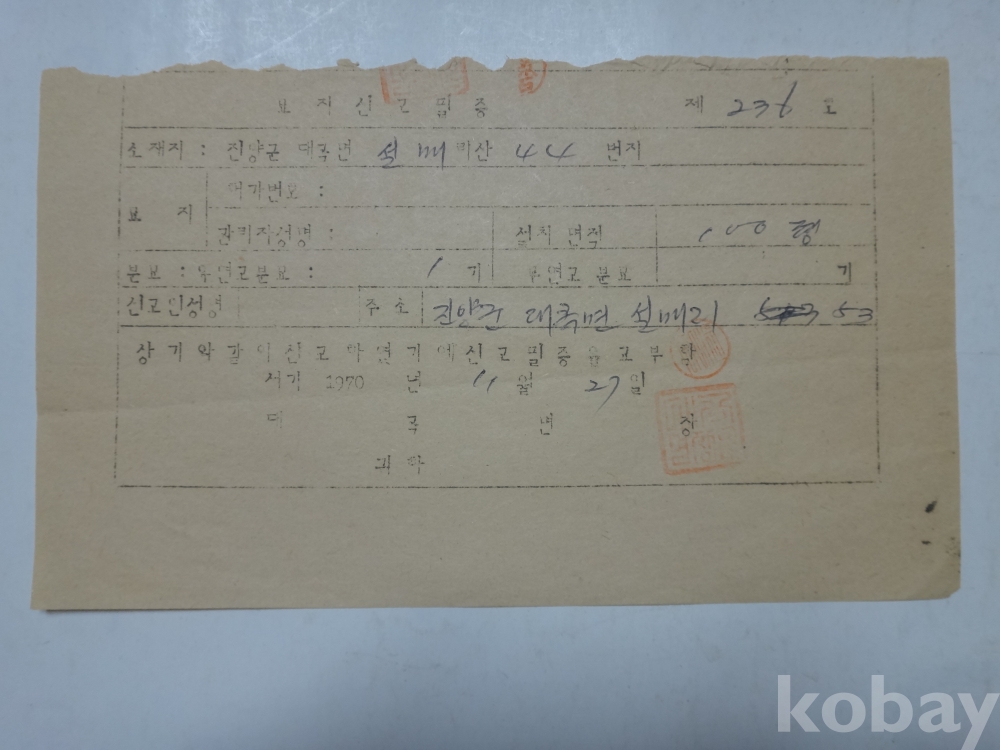 묘지신고필증 제 236 호
소재지 : 진양군 대곡면 설매리산 44 번지
묘 지 허가번호 :
관리자성명 : 설치 면적 100 평
분묘 : 유연고분묘 : 1 기 무연고 분묘 기
신고인성명 주소 진양군 대곡면 설매리 53
상기와같이신고하였기에신고필증을교부함
서기 1970 년 11 월 27 일
대 곡 면 장
귀하
kobay